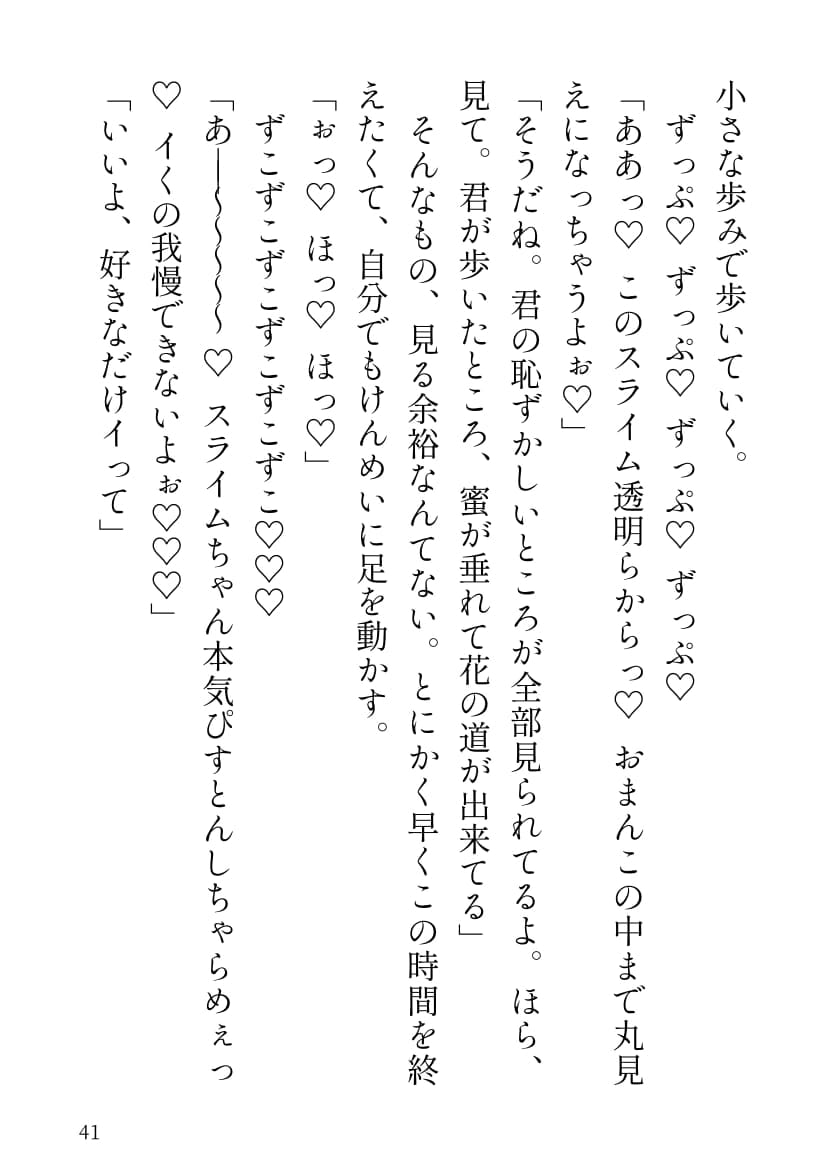 小さな歩みで歩いていく。
　ずっぷ♡ ずっぷ♡ ずっぷ♡ ずっぷ♡
「ああっ♡ このスライム透明らからっ♡ おまんこの中まで丸見
えになっちゃうよぉ♡」
「そうだね。君の恥ずかしいところが全部見られてるよ。ほら、
見て。君が歩いたところ、蜜が垂れて花の道が出来てる」
　そんなもの、見る余裕なんてない。とにかく早くこの時間を終
えたくて、自分でもけんめいに足を動かす。
「ぉっ♡ ほっ♡ ほっ♡」
　ずこずこずこずこずこずこ♡♡♡
「あ――～～～～～♡ スライムちゃん本気ぴすとんしちゃらめぇっ
♡ イくの我慢できないよぉ♡♡♡」
「いいよ、好きなだけイって」
41